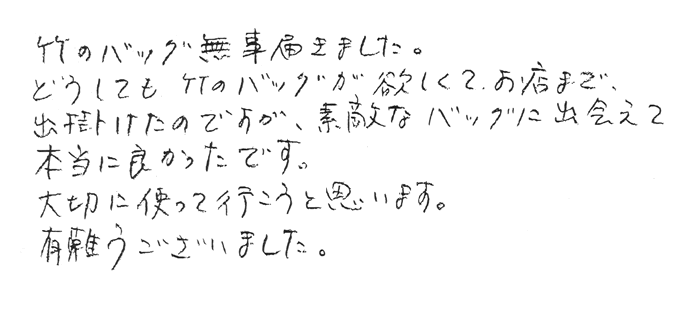 竹のバッグ無事届きました。
どうしても竹のバッグが欲しくて、お店まで、
出掛けたのですが、素敵なバッグに出会えて
本当に良かったです。
大切に使って行こうと思います。
有難うございました。